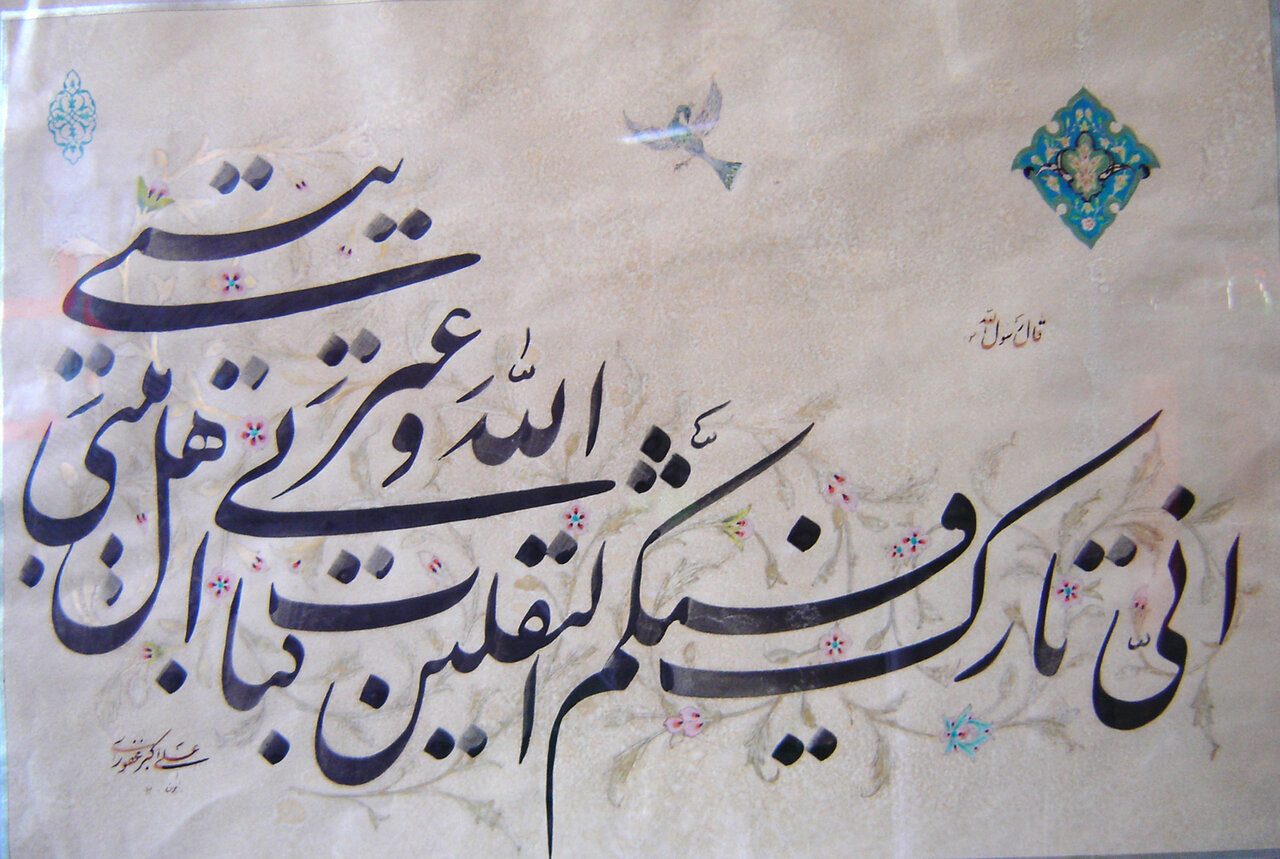 قال رسول الله ص
انی تارک فیکم الثقلین کتاب الله و عترتی اهل بیتی بیتی
علی اکبر غفوری